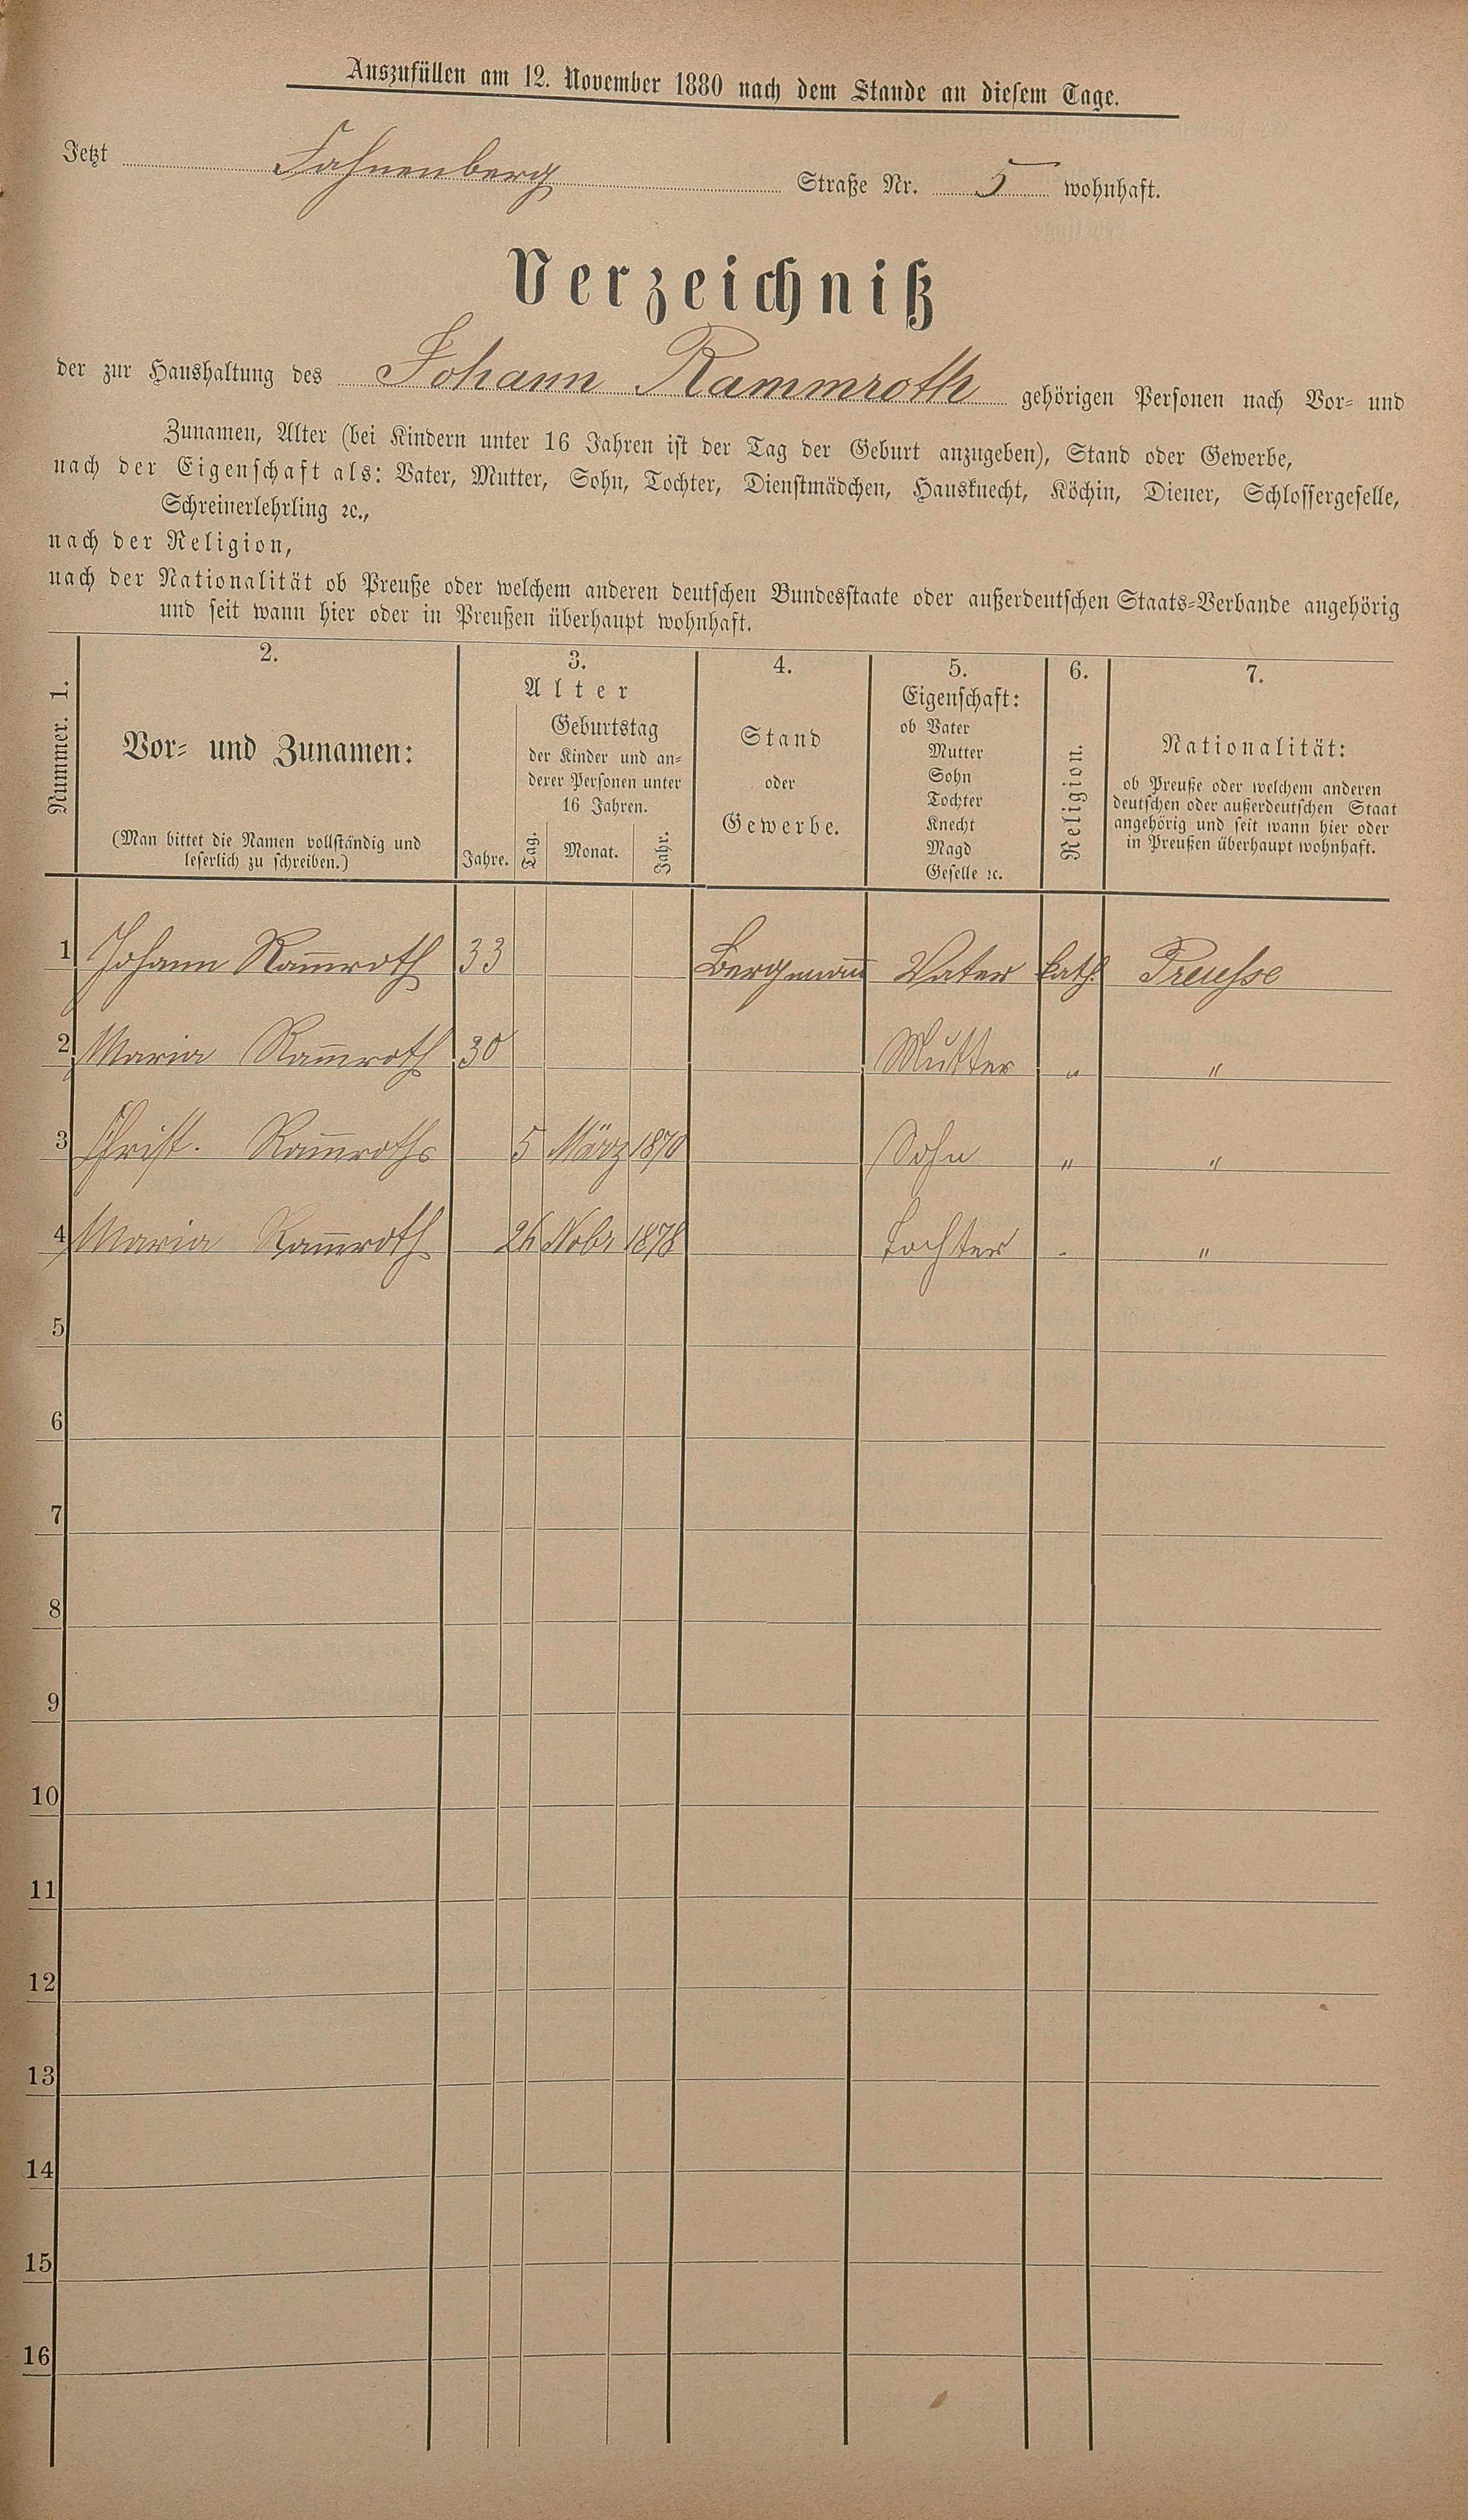 Auszufüllen am 12. November 1880 nach dem Stande an diesem Tage.
Jetzt Fahnenberg Straße Nr. 5 wohnhaft.
Verzeichniß
der zur Haushaltung des Johann Rammroth gehörigen Personen nach Vor- und
Zunamen, Alter (bei Kindern unter 16 Jahren ist der Tag der Geburt anzugeben), Stand oder Gewerbe,
nach der Eigenschaft als: Vater, Mutter, Sohn, Tochter, Dienstmädchen, Hausknecht, Köchin, Diener, Schlossergeselle,
Schreinerlehrling ꝛc.,
nach der Religion,
nach der Nationalität ob Preuße oder welchem anderen deutschen Bundesstaate oder außerdeutschen Staats-Verbande angehörig
und seit wann hier oder in Preußen überhaupt wohnhaft.
Nummer. 1.
2.
Vor- und Zunamen:
(Man bittet die Namen vollständig und
leserlich zu schreiben.)
3.
Alter
Jahre.
Geburtstag
der Kinder und an-
derer Personen unter
16 Jahren.
Tag. Monat. Jahr.
4.
Stand
oder
Gewerbe.
5.
Eigenschaft:
ob Vater
Mutter
Sohn
Tochter
Knecht
Magd
Geselle ꝛc.
6.
Religion.
7.
Nationalität:
ob Preuße oder welchem anderen
deutschen oder außerdeutschen Staat
angehörig und seit wann hier oder
in Preußen überhaupt wohnhaft.
1 Johann Ram̅roth 33 Bergman̅ Vater kath. Preusse
2 Maria Ram̅roth 30 Mutter " "
3 Christ. Ram̅roth 5 März 1870 Sohn " "
4 Maria Ram̅roth 26 Nobr 1878 Tochter " "
5
6
7
8
9
10
11
12
13
14
15
16